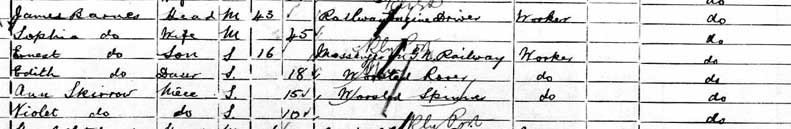 James Barnes Head M 43 Railway Engine Driver Worker do
Sophia do Wife M 45 do
Ernest do Son S 16 Messenger Railway Worker do
Edith do Daur S 18 Worsted Rover do do
Ann Skirrow Niece S 15 Worsted Spinner do do
Violet do do S 10 do